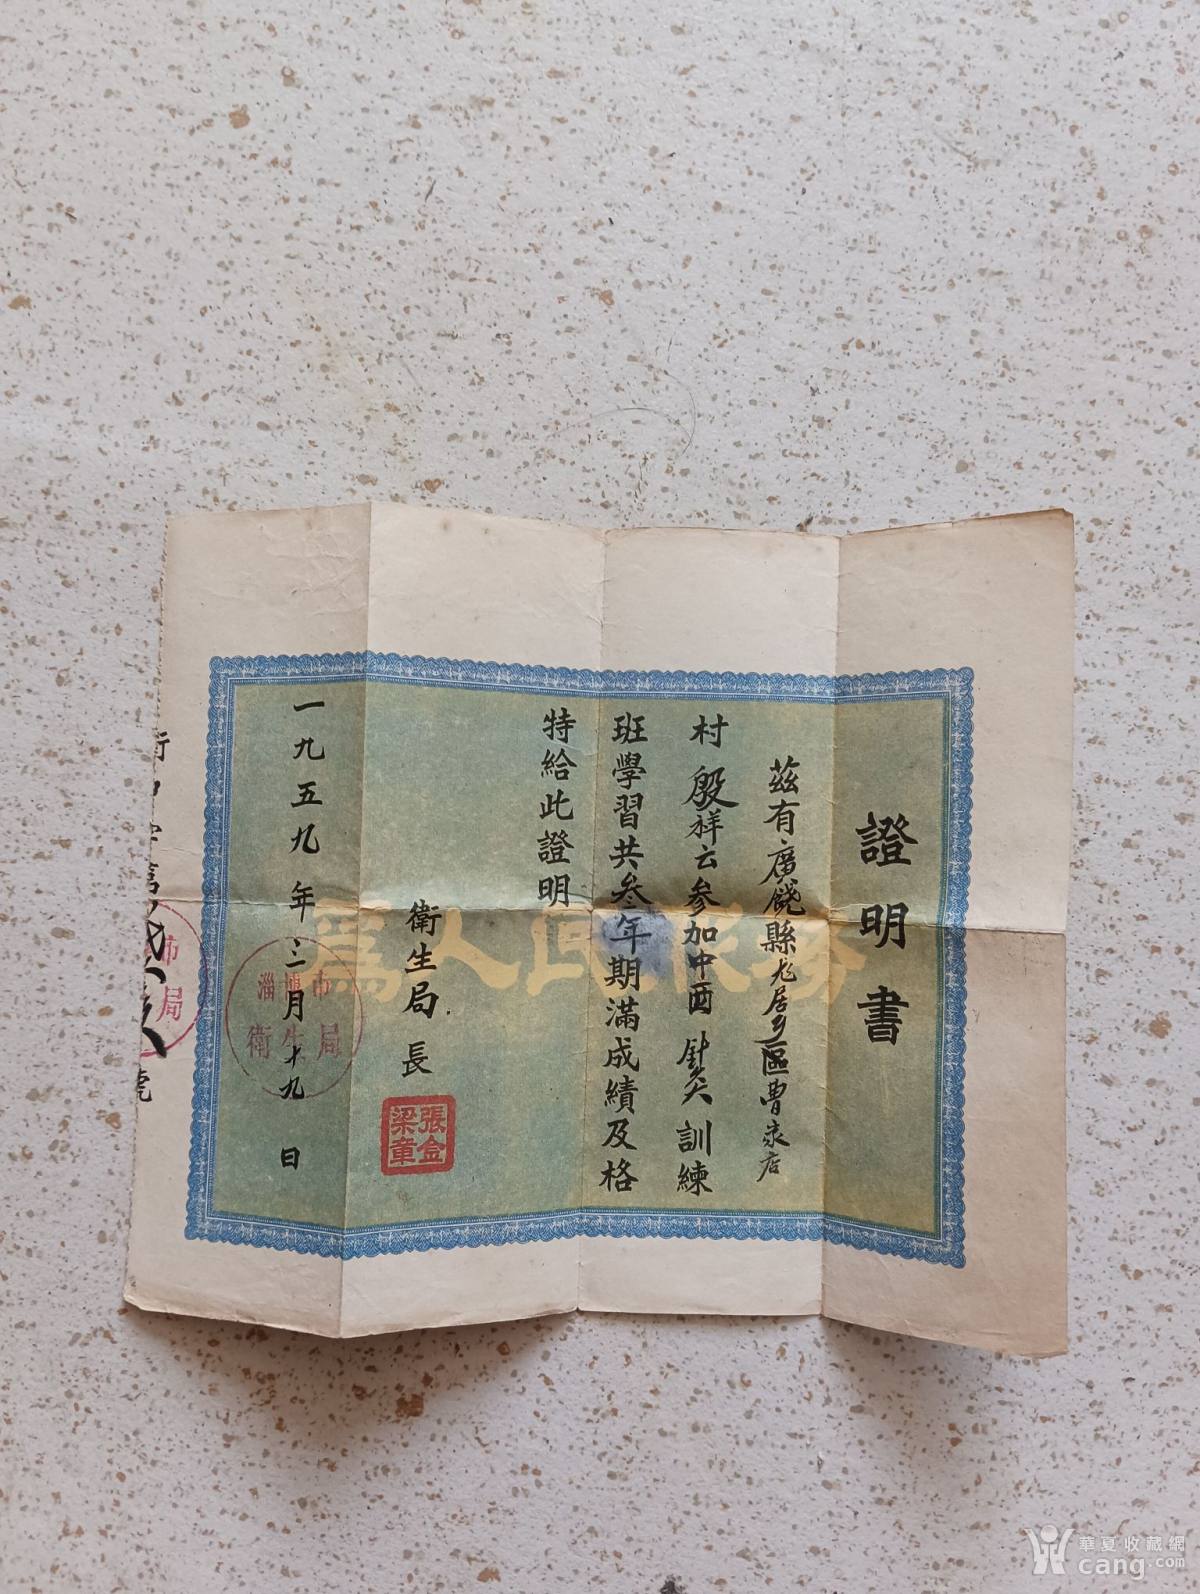 證明書
茲有廣饒縣尨居乡區曹家店
村殷祥云参加中酉針灸訓練
班學習共叁年期滿成績及格
特給此證明
為人民服務
衛生局長
張金梁章
一九五九年三月十九日
淄博市
衛生局
市
局
號
華夏收藏網
cang.com